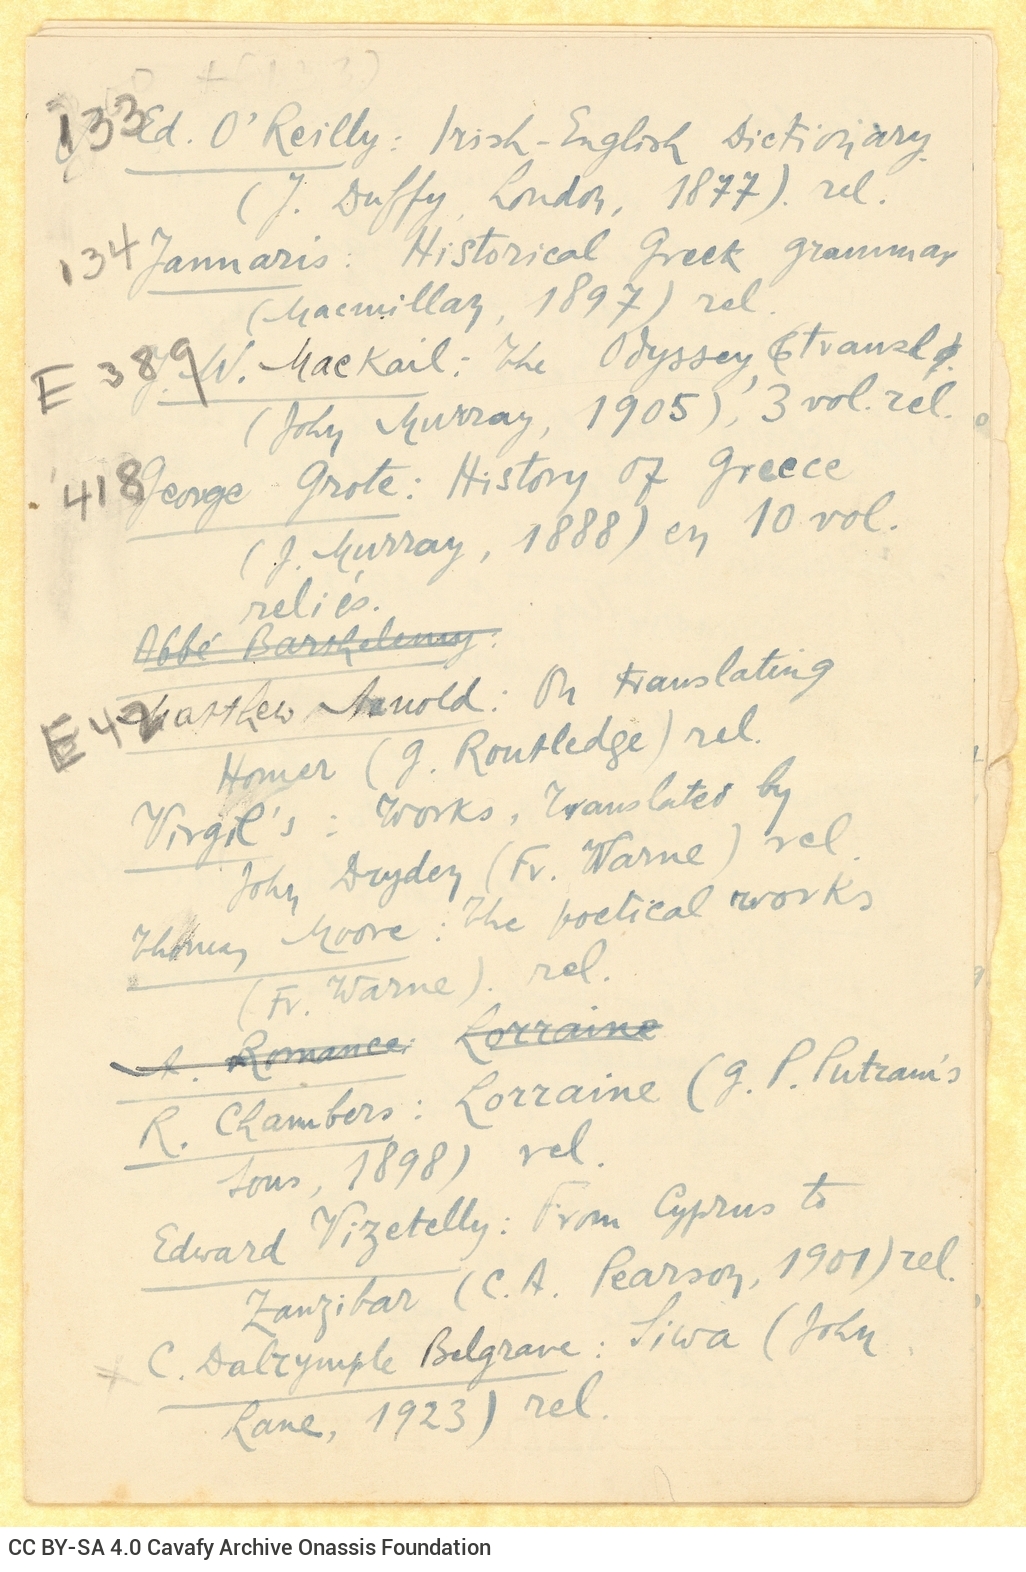 133 Ed. O'Reilly: Irish-English Dictionary
(J. Duffy, London, 1877). rel.
134 Jannaris: Historical Greek grammar
(Macmillan, 1897) rel.
E 389 J. W. Mackail: The Odyssey (transl.
(John Murray, 1905), 3 vol. rel.
418 George Grote: History of Greece
(J. Murray, 1888) en 10 vol.
reliés.
Abbé Barthelemy:
E 42 Matthew Arnold: On translating
Homer (G. Routledge) rel.
Virgil's: Works, Translated by
John Dryden (Fr. Warne) rel.
Thomas Moore: The poetical works
(Fr. Warne). rel.
A. Romance: Lorraine
R. Chambers: Lorraine (G. P. Putnam's
Sons, 1898) rel.
Edward Vizetelly: From Cyprus to
Zanzibar (C. A. Pearson, 1901) rel.
C. Dalrymple Belgrave: Siwa (John
Lane, 1923) rel.
CC BY-SA 4.0 Cavafy Archive Onassis Foundation